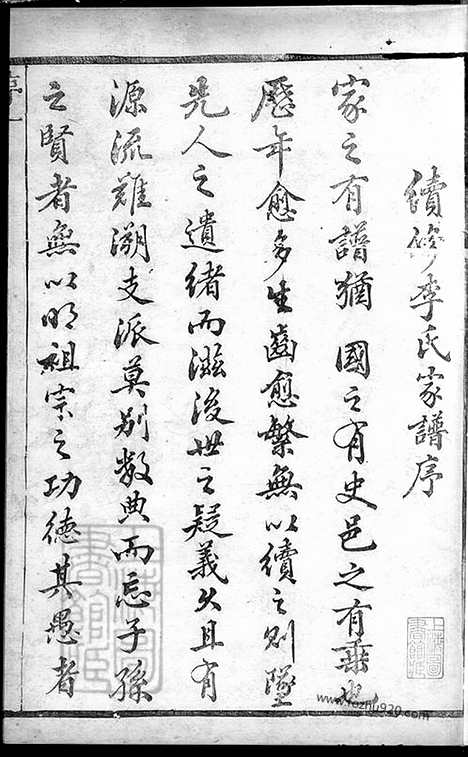 續修李氏家譜序
家之有譜猶 國之有史邑之有乘也
歷年愈多生齒愈繁無以續之則墜
先人之遺緒而滋後世之疑義久且有
源流難溯支派莫別數典而忘子孫
之賢者無以明祖宗之功德其愚者
序一
www.fozhu920.com